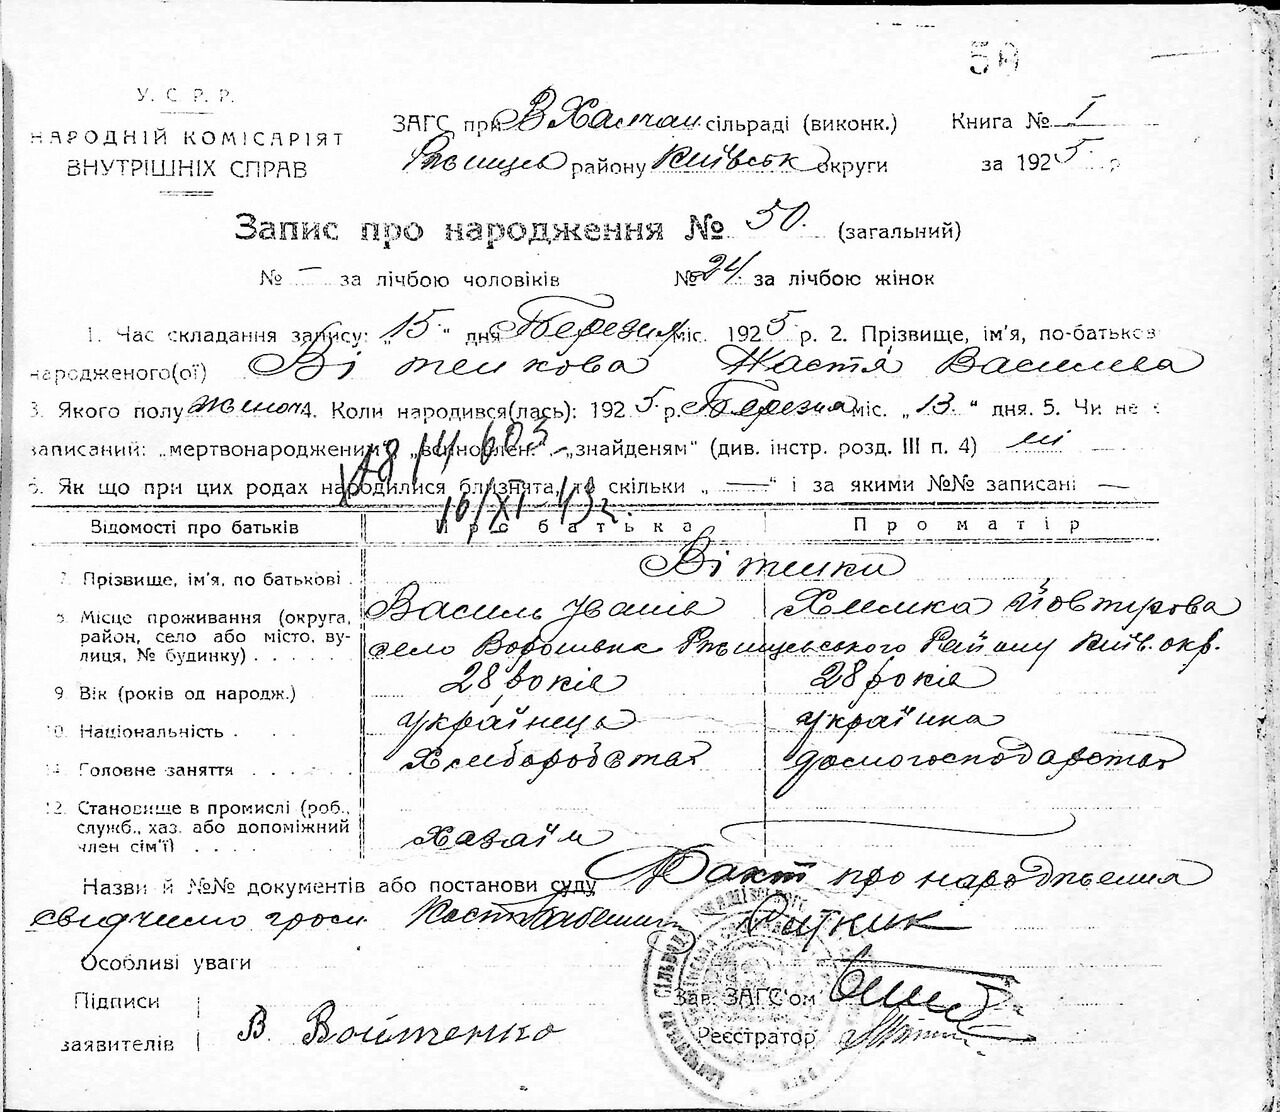 50
У. С. Р. Р.
НАРОДНІЙ КОМІСАРІЯТ
ВНУТРІШНІХ СПРАВ
ЗАГС при В Халчан сільраді (виконк.)
Ржищев району Київськ округи
Книга № I
за 1925 р
Запис про народження № 50. (загальний)
№ — за лічбою чоловіків № 24. за лічбою жінок
1. Час складання запису: „15“ дня Березня міс. 1925 р. 2. Прізвище, ім'я, по-батьков
народженого(ої) Вітенкова Настя Василева
3. Якого полу жіноч 4. Коли народився(лась): 1925 р. Березня міс. „13“ дня. 5. Чи не є
записаний: „мертвонародженим“, „всиновлен.“ „знайденям“ (див. інстр. розд. III п. 4) ні
6. Як що при цих родах народилися близнята, то скільки „—“ і за якими №№ записані —
814603
16/XI-43г.
Відомості про батьків Про батька Про матір
7. Прізвище, ім'я, по батькові Вітенки
Василь Іванів Химка Йовтирова
8. Місце проживання (округа, район, село або місто, вулиця, № будинку) село Ржищевського Району Київ. окр.
9. Вік (років од народж.) 28 років 28 років
10. Національність українець українка
11. Головне заняття Хліборобство домогосподарство
12. Становище в промислі (роб., служб., хаз. або допоміжний член сім'ї) хазаїн
Назви й №№ документів або постанови суду Факт про народження
свідчимо гром. Кость
Особливі уваги
Підписи
заявителів В. Войтенко
Зав. ЗАГС'ом
Реєстратор